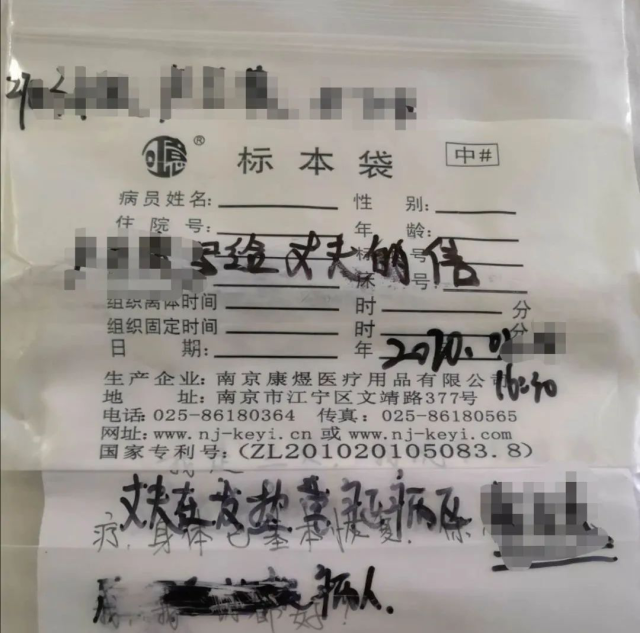 标本袋 中#
病员姓名: 性 别:
住 院 号: 年 龄:
写给丈夫的信
号:
组织离体时间 时 分
组织固定时间 时 分
日 期: 年 2020.
生产企业: 南京康煜医疗用品有限公
16:30
地 址: 南京市江宁区文靖路377号
电话: 025-86180364 传真: 025-86180565
网址: www.nj-keyi.cn 或 www.nj-keyi.com
国家专利号: (ZL201020105083.8)
丈夫在发热 病区
疗,身体已基本恢复.
病人.